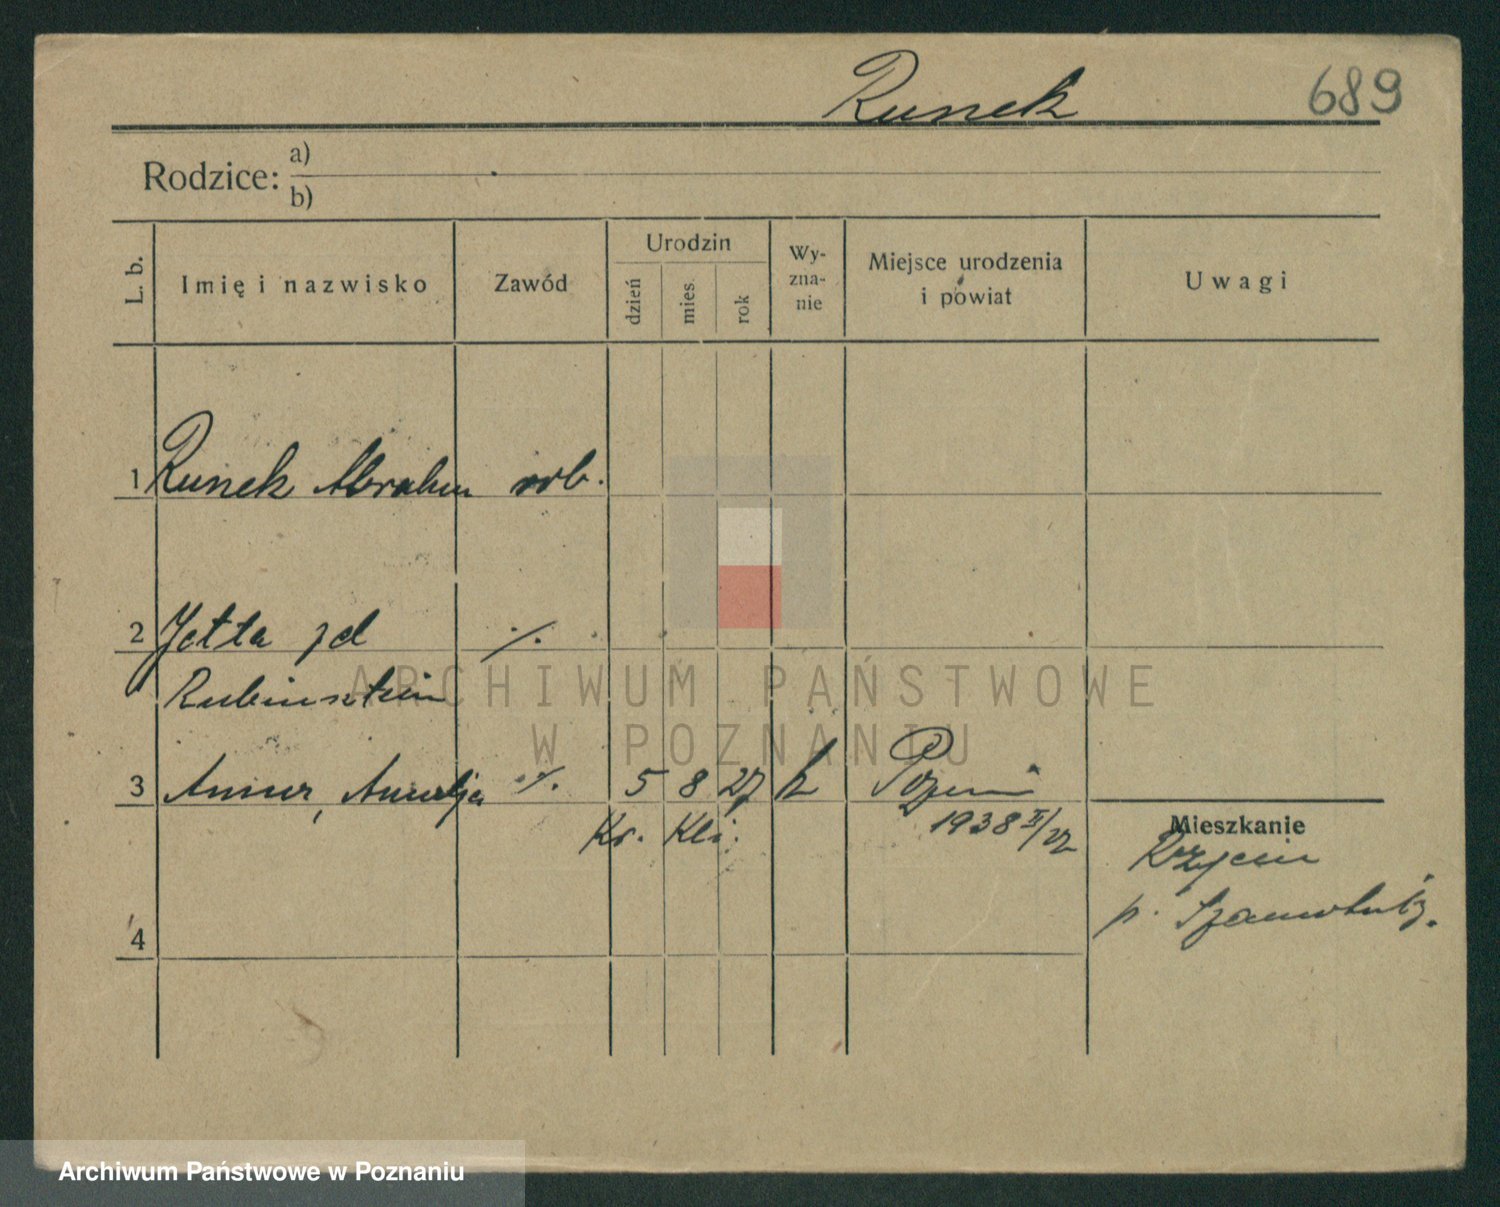 Runek
689
Rodzice: a)
b)
L. b.
Imię i nazwisko
Zawód
Urodzin
dzień
mies.
rok
Wy-
zna-
nie
Miejsce urodzenia
i powiat
Uwagi
1 Runek Abraham rob.
2 Jetta zd ./.
Rubinsztein
3 ./. 5 8 27
Kr. Kli.
1938 II/22
Mieszkanie
p.
4
ARCHIWUM PAŃSTWOWE
W POZNANIU
Archiwum Państwowe w Poznaniu